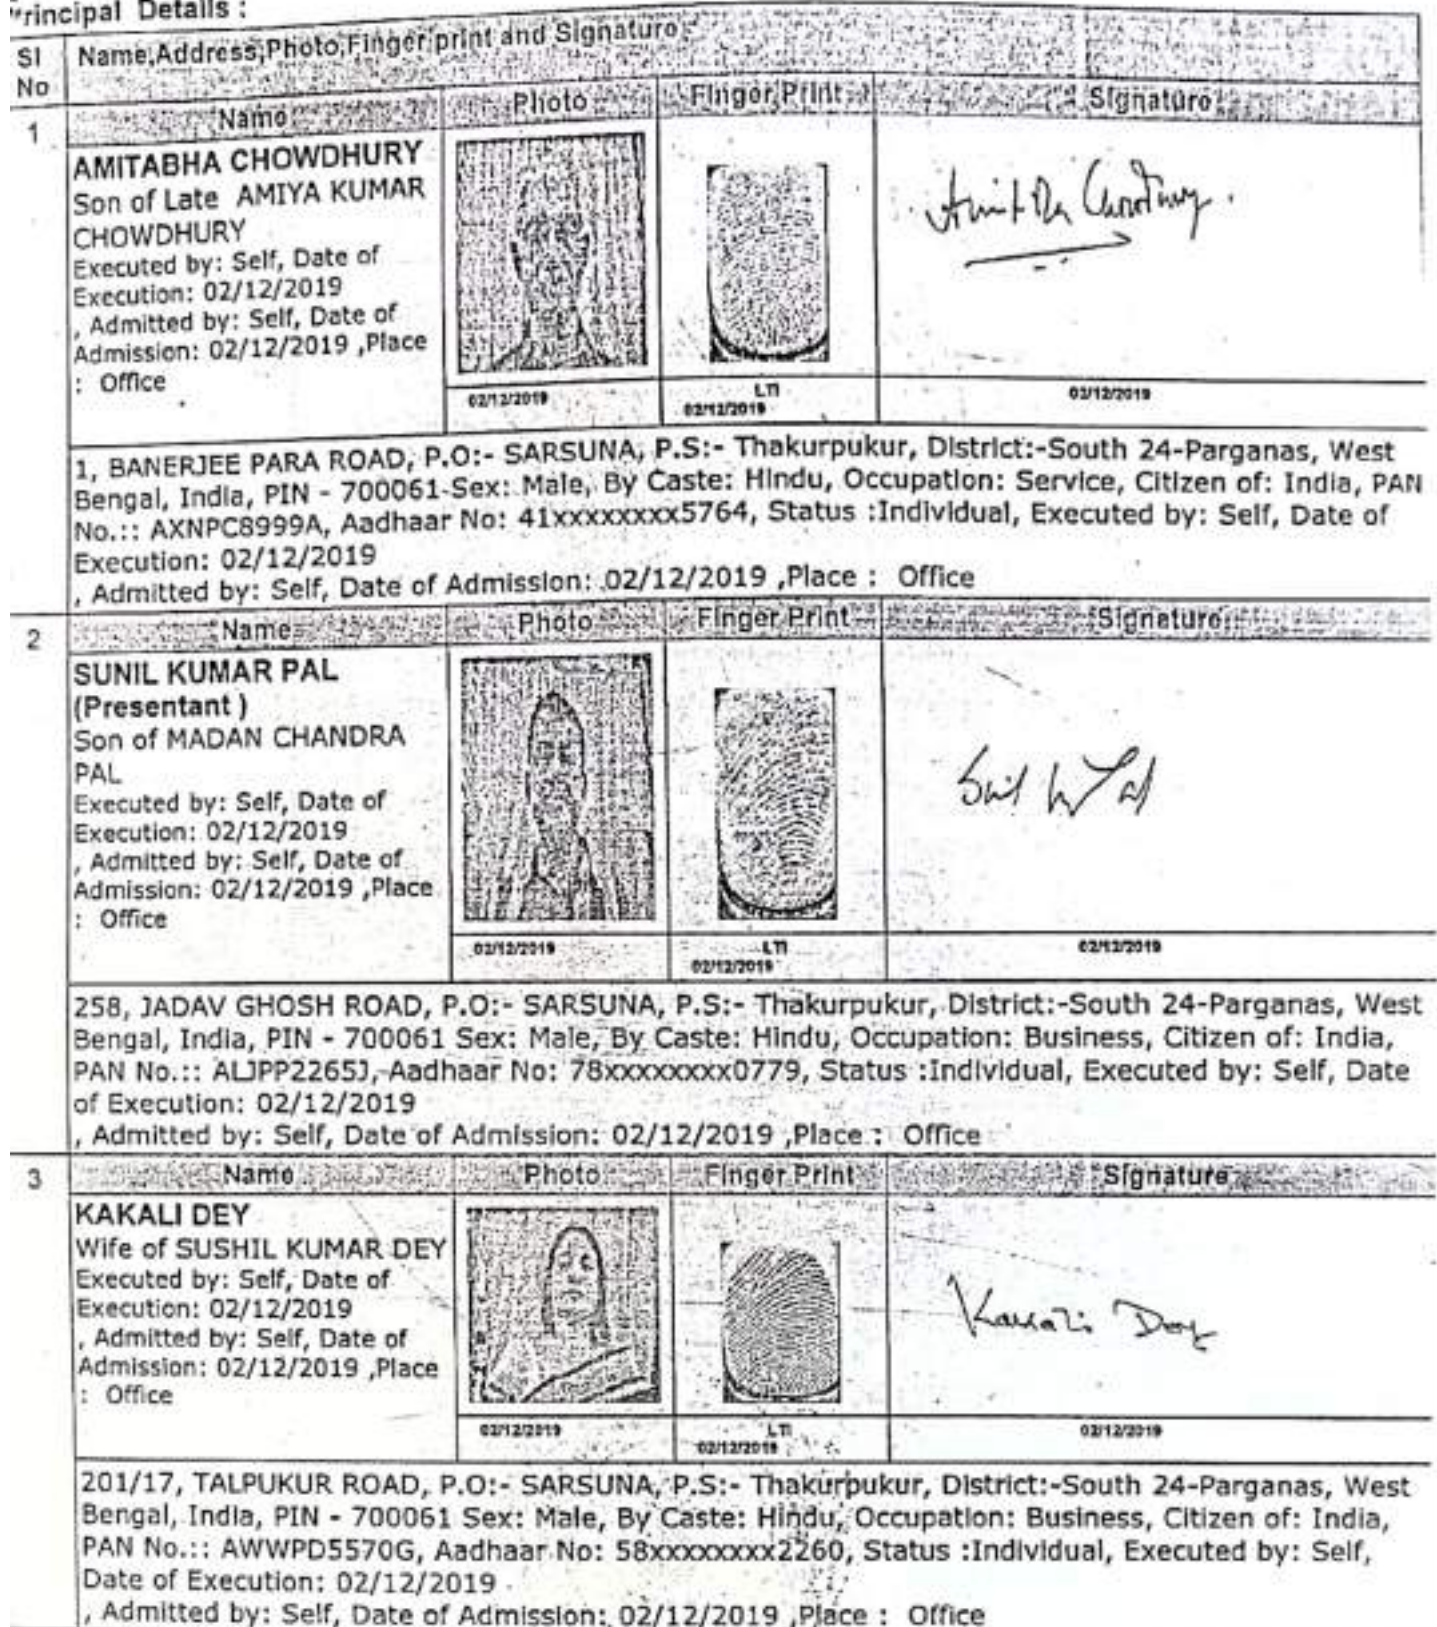 Principal Details :
Sl No
Name,Address,Photo,Finger print and Signature
Name Photo Finger Print Signature
1
AMITABHA CHOWDHURY
Son of Late AMIYA KUMAR
CHOWDHURY
Executed by: Self, Date of
Execution: 02/12/2019
, Admitted by: Self, Date of
Admission: 02/12/2019 ,Place
: Office
02/12/2019
LTI
02/12/2019
02/12/2019
1, BANERJEE PARA ROAD, P.O:- SARSUNA, P.S:- Thakurpukur, District:-South 24-Parganas, West
Bengal, India, PIN - 700061 Sex: Male, By Caste: Hindu, Occupation: Service, Citizen of: India, PAN
No.:: AXNPC8999A, Aadhaar No: 41xxxxxxxx5764, Status :Individual, Executed by: Self, Date of
Execution: 02/12/2019
, Admitted by: Self, Date of Admission: 02/12/2019 ,Place : Office
2
Name Photo Finger Print Signature
SUNIL KUMAR PAL
(Presentant )
Son of MADAN CHANDRA
PAL
Executed by: Self, Date of
Execution: 02/12/2019
, Admitted by: Self, Date of
Admission: 02/12/2019 ,Place
: Office
02/12/2019
LTI
02/12/2019
02/12/2019
258, JADAV GHOSH ROAD, P.O:- SARSUNA, P.S:- Thakurpukur, District:-South 24-Parganas, West
Bengal, India, PIN - 700061 Sex: Male, By Caste: Hindu, Occupation: Business, Citizen of: India,
PAN No.:: ALJPP2265J, Aadhaar No: 78xxxxxxxx0779, Status :Individual, Executed by: Self, Date
of Execution: 02/12/2019
, Admitted by: Self, Date of Admission: 02/12/2019 ,Place : Office
3
Name Photo Finger Print Signature
KAKALI DEY
Wife of SUSHIL KUMAR DEY
Executed by: Self, Date of
Execution: 02/12/2019
, Admitted by: Self, Date of
Admission: 02/12/2019 ,Place
: Office
Kakali Dey
02/12/2019
LTI
02/12/2019
02/12/2019
201/17, TALPUKUR ROAD, P.O:- SARSUNA, P.S:- Thakurpukur, District:-South 24-Parganas, West
Bengal, India, PIN - 700061 Sex: Male, By Caste: Hindu, Occupation: Business, Citizen of: India,
PAN No.:: AWWPD5570G, Aadhaar No: 58xxxxxxxx2260, Status :Individual, Executed by: Self,
Date of Execution: 02/12/2019
, Admitted by: Self, Date of Admission: 02/12/2019 ,Place : Office